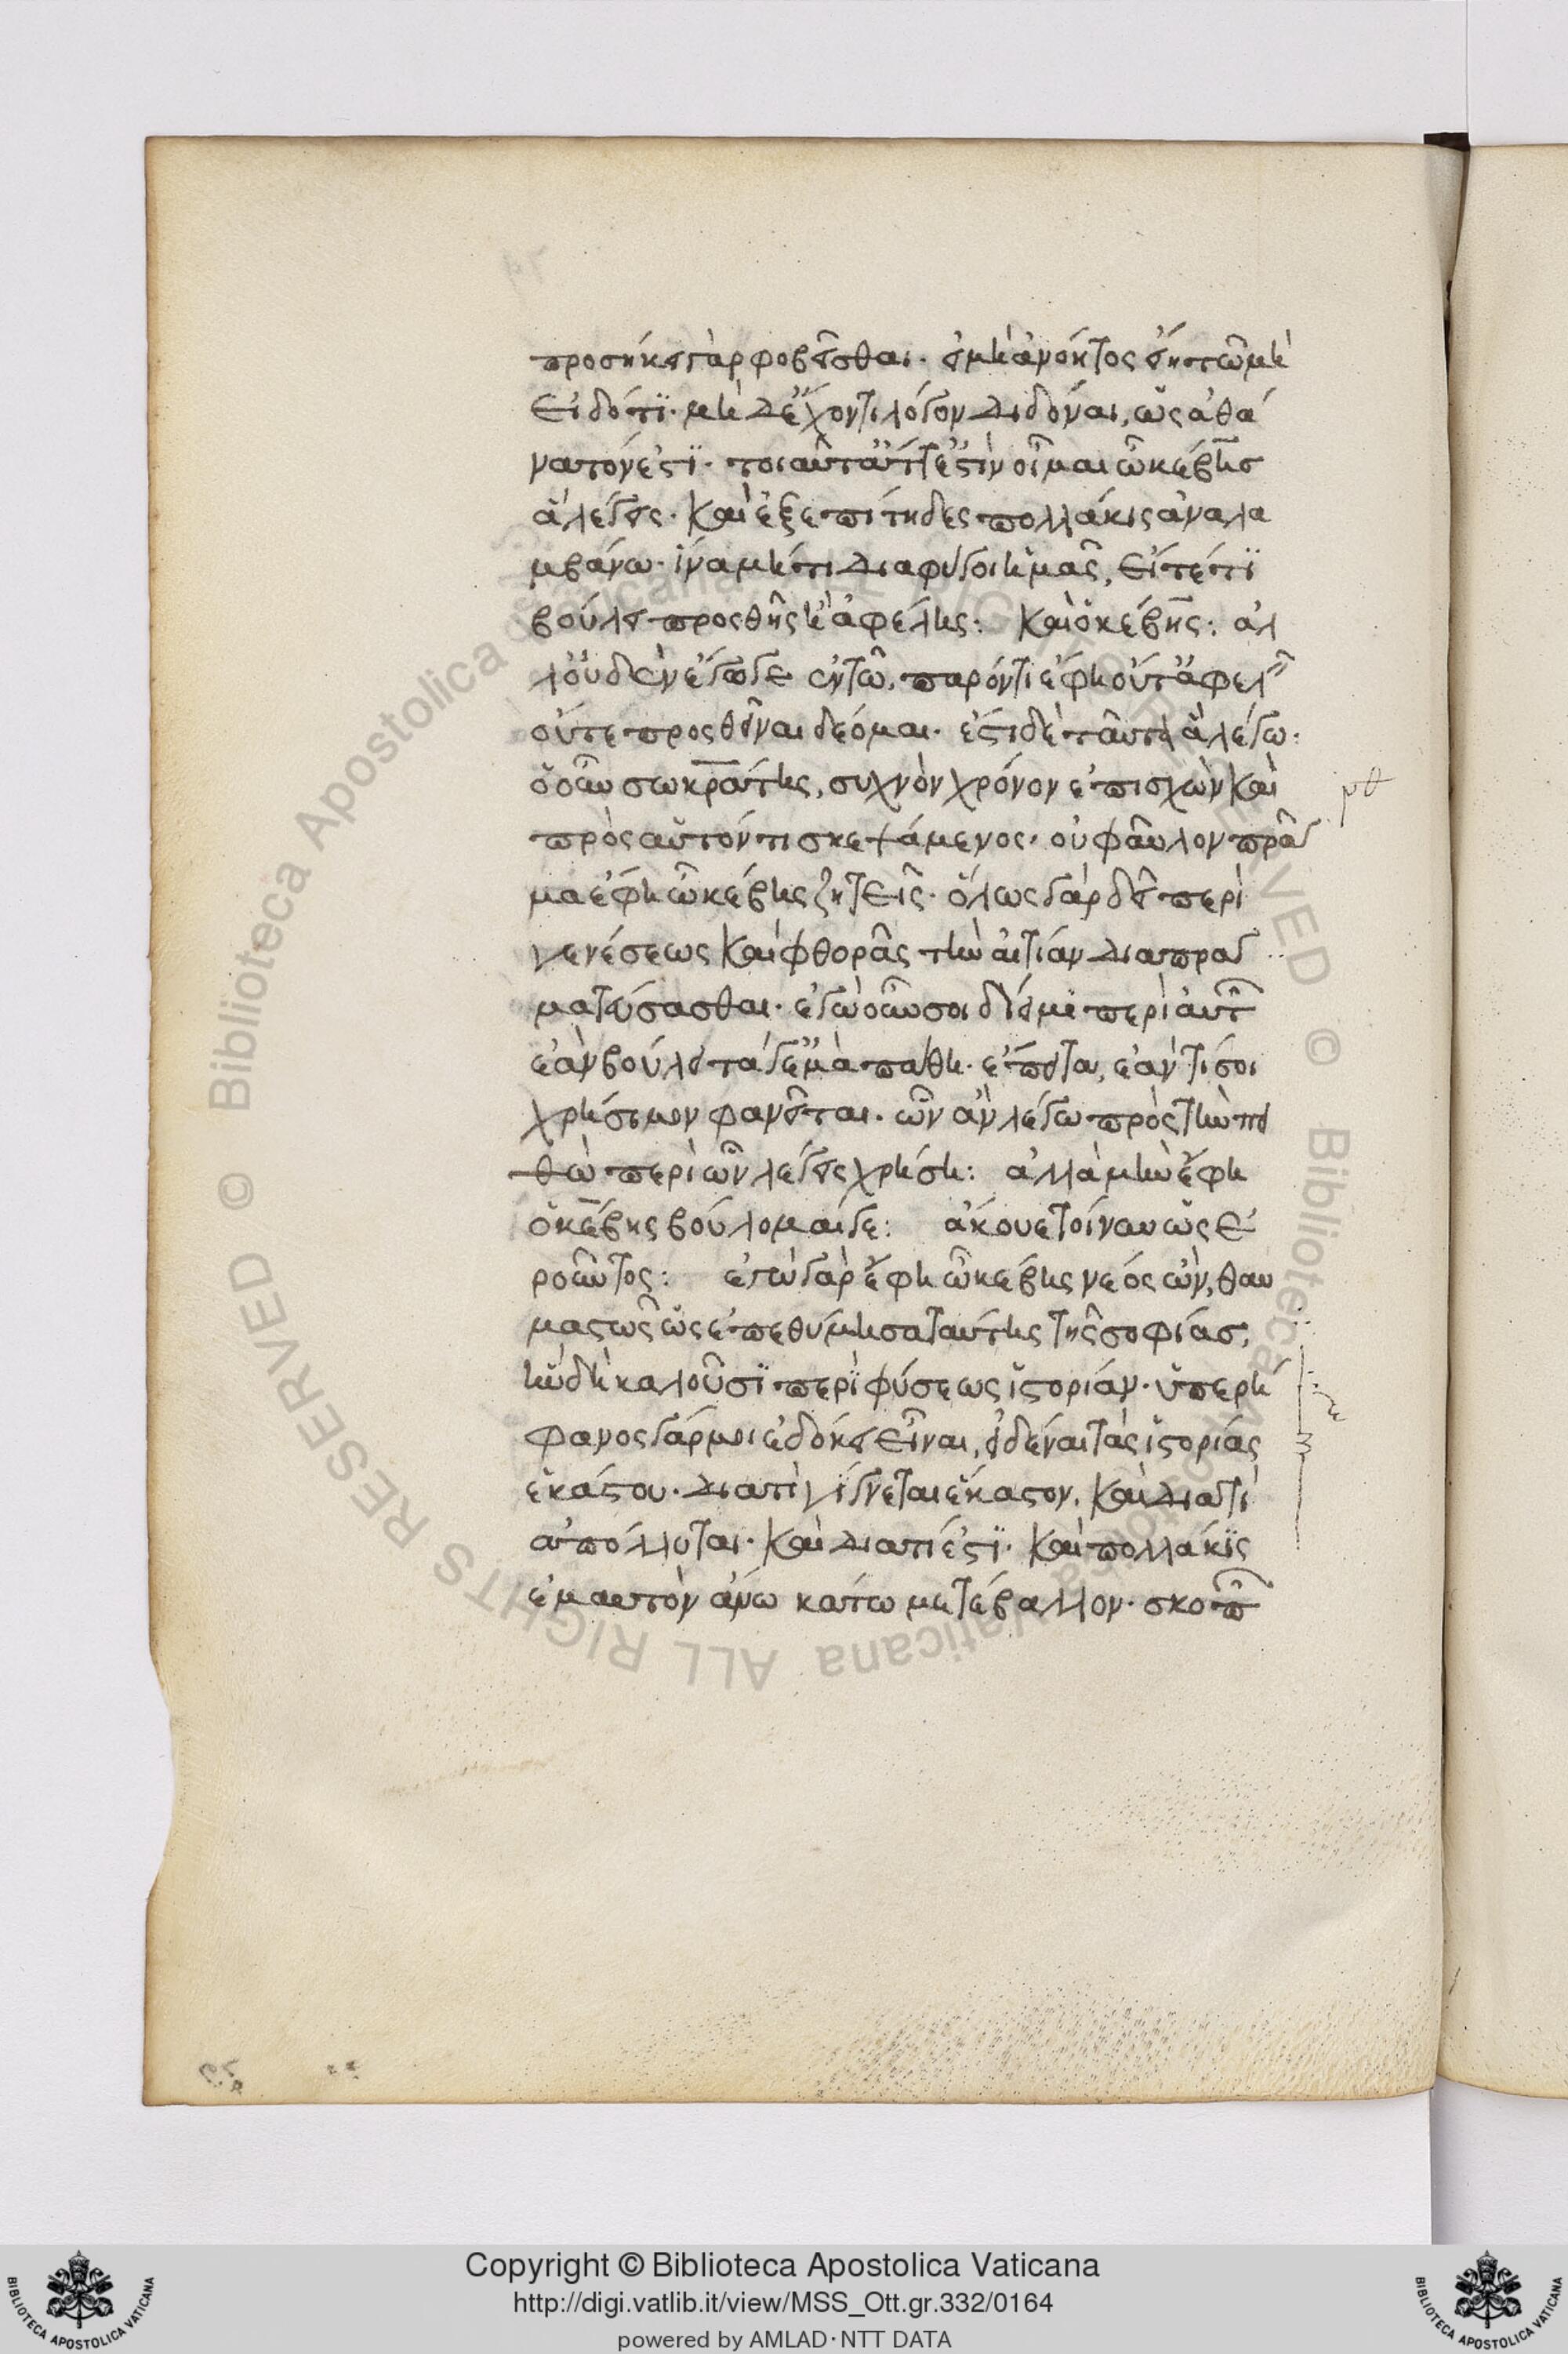 προσήκει γὰρ φοβεῖσθαι· εἰ μὴ ἀνόητος εἴη τῶ μὴ
εἰδότι· μὴ δὲ ἔχοντι λόγον διδόναι, ὡς ἀθά
νατόν ἐστι· τοιαῦτ' ἄττ' ἐστὶν οἶμαι ὦ κέβης
ἃ λέγεις· καὶ ἐξεπίτηδες πολλάκις ἀναλα
μβάνω· ἵνα μή τι διαφύγοι ἡμᾶς, εἴτέ τι
βούλει προσθῇς ἢ ἀφέλῃς: καὶ ὁ κέβης: ἀλ
λ' οὐδὲν ἔγωγε ἐν τῶ παρόντι ἔφη οὔτ' ἀφελ
οὔτε προσθεῖναι δέομαι· ἔστι δὲ ταῦτα ἃ λέγω:
ὁ οὖν σωκράτης, συχνὸν χρόνον ἐπισχὼν καὶ
πρὸς αὑτόν τι σκεψάμενος· οὐ φαῦλον πρᾶγ
μα ἔφη ὦ κέβης ζητεῖς· ὅλως γὰρ δεῖ περὶ
γενέσεως καὶ φθορᾶς τὴν αἰτίαν διαπραγ
ματεύσασθαι· ἐγὼ οὖν σοι δίειμι περὶ αὐτ
ἐὰν βούλει τά γε ἐμὰ πάθη· ἔπειτα, ἐάν τί σοι
χρήσιμον φανεῖται· ὧν ἂν λέγω πρὸς τὴν πει
θὼ περὶ ὧν λέγεις χρήσῃ: ἀλλὰ μὴν ἔφη
ὁ κέβης βούλομαί γε: ἄκουε τοίνυν ὡς ἐ
ροῦντος: ἐγὼ γὰρ ἔφη ὦ κέβης νέος ὢν, θαυ
μαστῶς ὡς ἐπεθύμησα ταύτης τῆς σοφίας,
ἣν δὴ καλοῦσι περὶ φύσεως ἱστορίαν· ὑπερή
φανος γάρ μοι ἐδόκει εἶναι, εἰδέναι τὰς ἱστορίας
ἑκάστου· διατί γίγνεται ἕκαστον, καὶ διατί
ἀπόλλυται· καὶ διατί ἐστι· καὶ πολλάκις
ἐμαυτὸν ἄνω κάτω μετέβαλλον· σκοπ
Copyright © Biblioteca Apostolica Vaticana
http://digi.vatlib.it/view/MSS_Ott.gr.332/0164
powered by AMLAD·NTT DATA